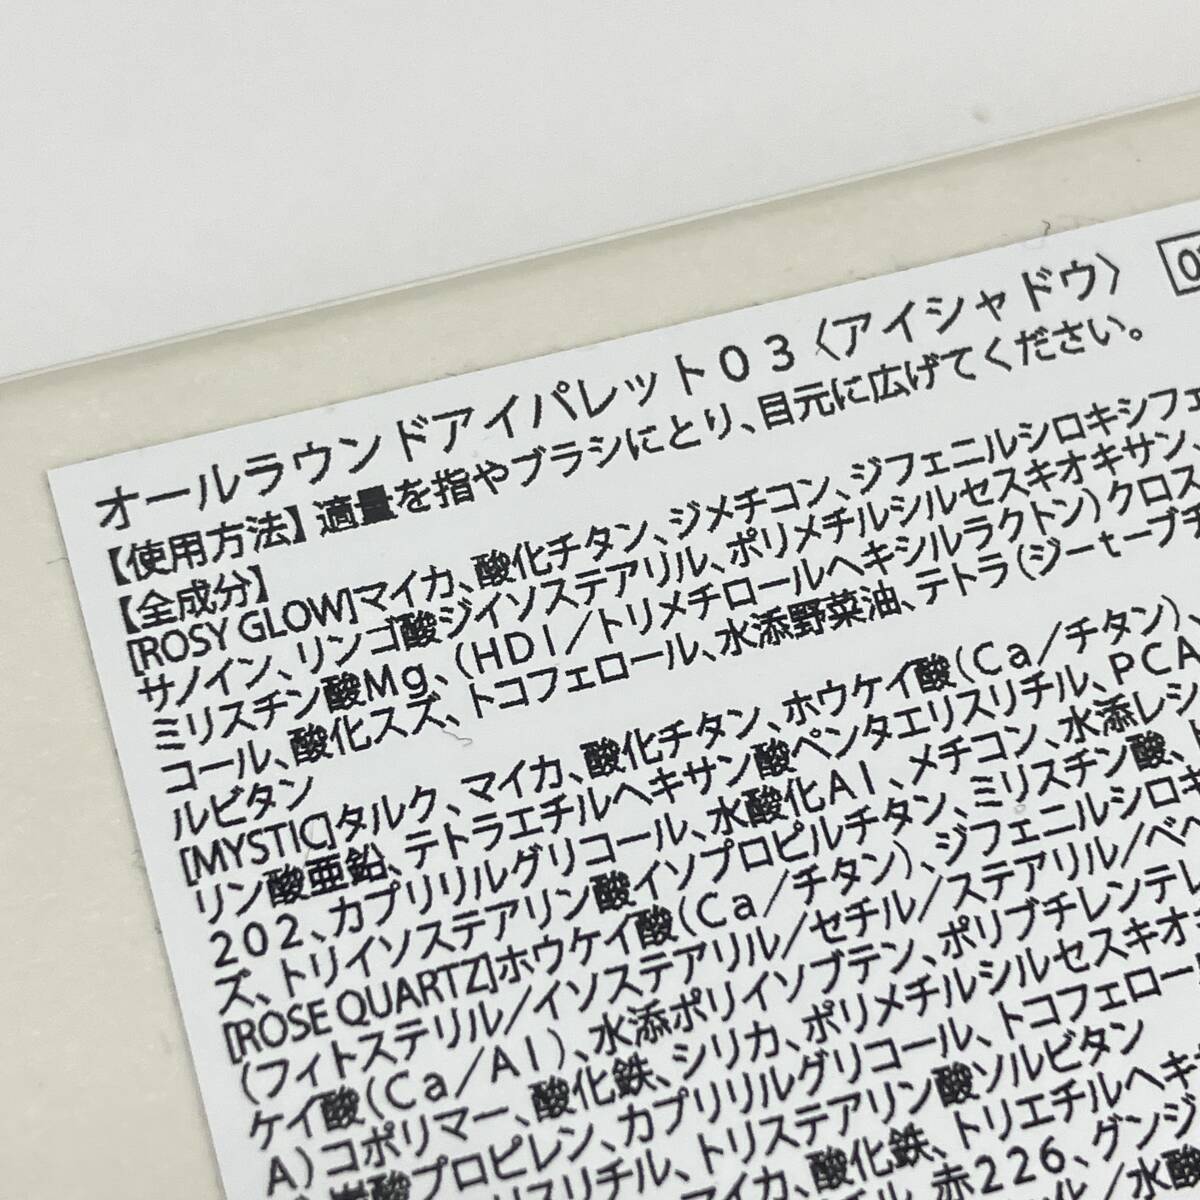 オールラウンドアイパレット03〈アイシャドウ〉
【使用方法】適量を指やブラシにとり、目元に広げてください。
【全成分】
[ROSY GLOW]マイカ、酸化チタン、ジメチコン、ジフェニルシロキシフェ
サノイン、リンゴ酸ジイソステアリル、ポリメチルシルセスキオキサン、
ミリスチン酸Mg、(HDI/トリメチロールヘキシルラクトン)クロス
コール、酸化スズ、トコフェロール、水添野菜油、テトラ(ジーtーブチ
ルビタン
[MYSTIC]タルク、マイカ、酸化チタン、ホウケイ酸(Ca/チタン)、
リン酸亜鉛、テトラエチルヘキサン酸ペンタエリスリチル、PCA
202、カプリリルグリコール、水酸化Al、メチコン、水添レシ
ズ、トリイソステアリン酸イソプロピルチタン、ミリスチン酸、ト
[ROSE QUARTZ]ホウケイ酸(Ca/チタン)、ジフェニルシロキ
(フィトステリル/イソステアリル/セチル/ステアリル/ベヘ
ケイ酸(Ca/Al)、水添ポリイソブテン、ポリブチレンテレ
A)コポリマー、酸化鉄、シリカ、ポリメチルシルセスキオ
炭酸プロピレン、カプリリルグリコール、トコフェロール
スリチル、トリステアリン酸ソルビタン
マイカ、酸化鉄、トリエチルヘキ
赤226、グンジ
水酸